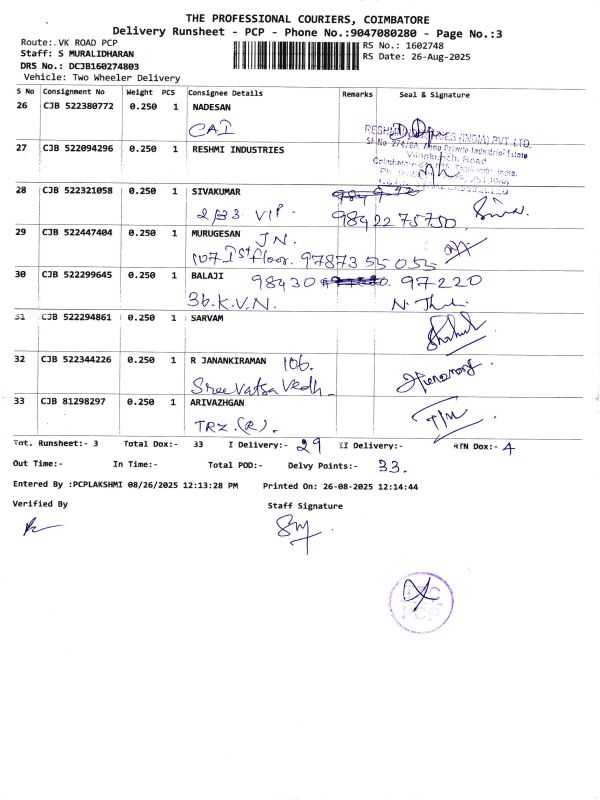 THE PROFESSIONAL COURIERS, COIMBATORE
Delivery Runsheet - PCP - Phone No.:9047080280 - Page No.:3
Route:.VK ROAD PCP
RS No.: 1602748
Staff: S MURALIDHARAN
RS Date: 26-Aug-2025
DRS No.: DCJB160274803
Vehicle: Two Wheeler Delivery
S No Consignment No Weight PCS Consignee Details Remarks Seal & Signature
26 CJB 522380772 0.250 1 NADESAN
CAI
27 CJB 522094296 0.250 1 RESHMI INDUSTRIES
RESHMI INDUSTRIES (INDIA) PVT LTD.
28 CJB 522321058 0.250 1 SIVAKUMAR
2/33 VIP. 98422 75750
29 CJB 522447404 0.250 1 MURUGESAN J.N.
107 Ist floor. 97873 55 055
30 CJB 522299645 0.250 1 BALAJI 98430 97220
36.K.V.N.
31 CJB 522294861 0.250 1 SARVAM
32 CJB 522344226 0.250 1 R JANANKIRAMAN 106.
Sree Vatsa Vedh
33 CJB 81298297 0.250 1 ARIVAZHGAN
TRZ.(R).
Tot. Runsheet:- 3 Total Dox:- 33 I Delivery:- 29 II Delivery:- RTN Dox:- 4
Out Time:- In Time:- Total POD:- Delvy Points:- 33.
Entered By :PCPLAKSHMI 08/26/2025 12:13:28 PM Printed On: 26-08-2025 12:14:44
Verified By Staff Signature
PCP